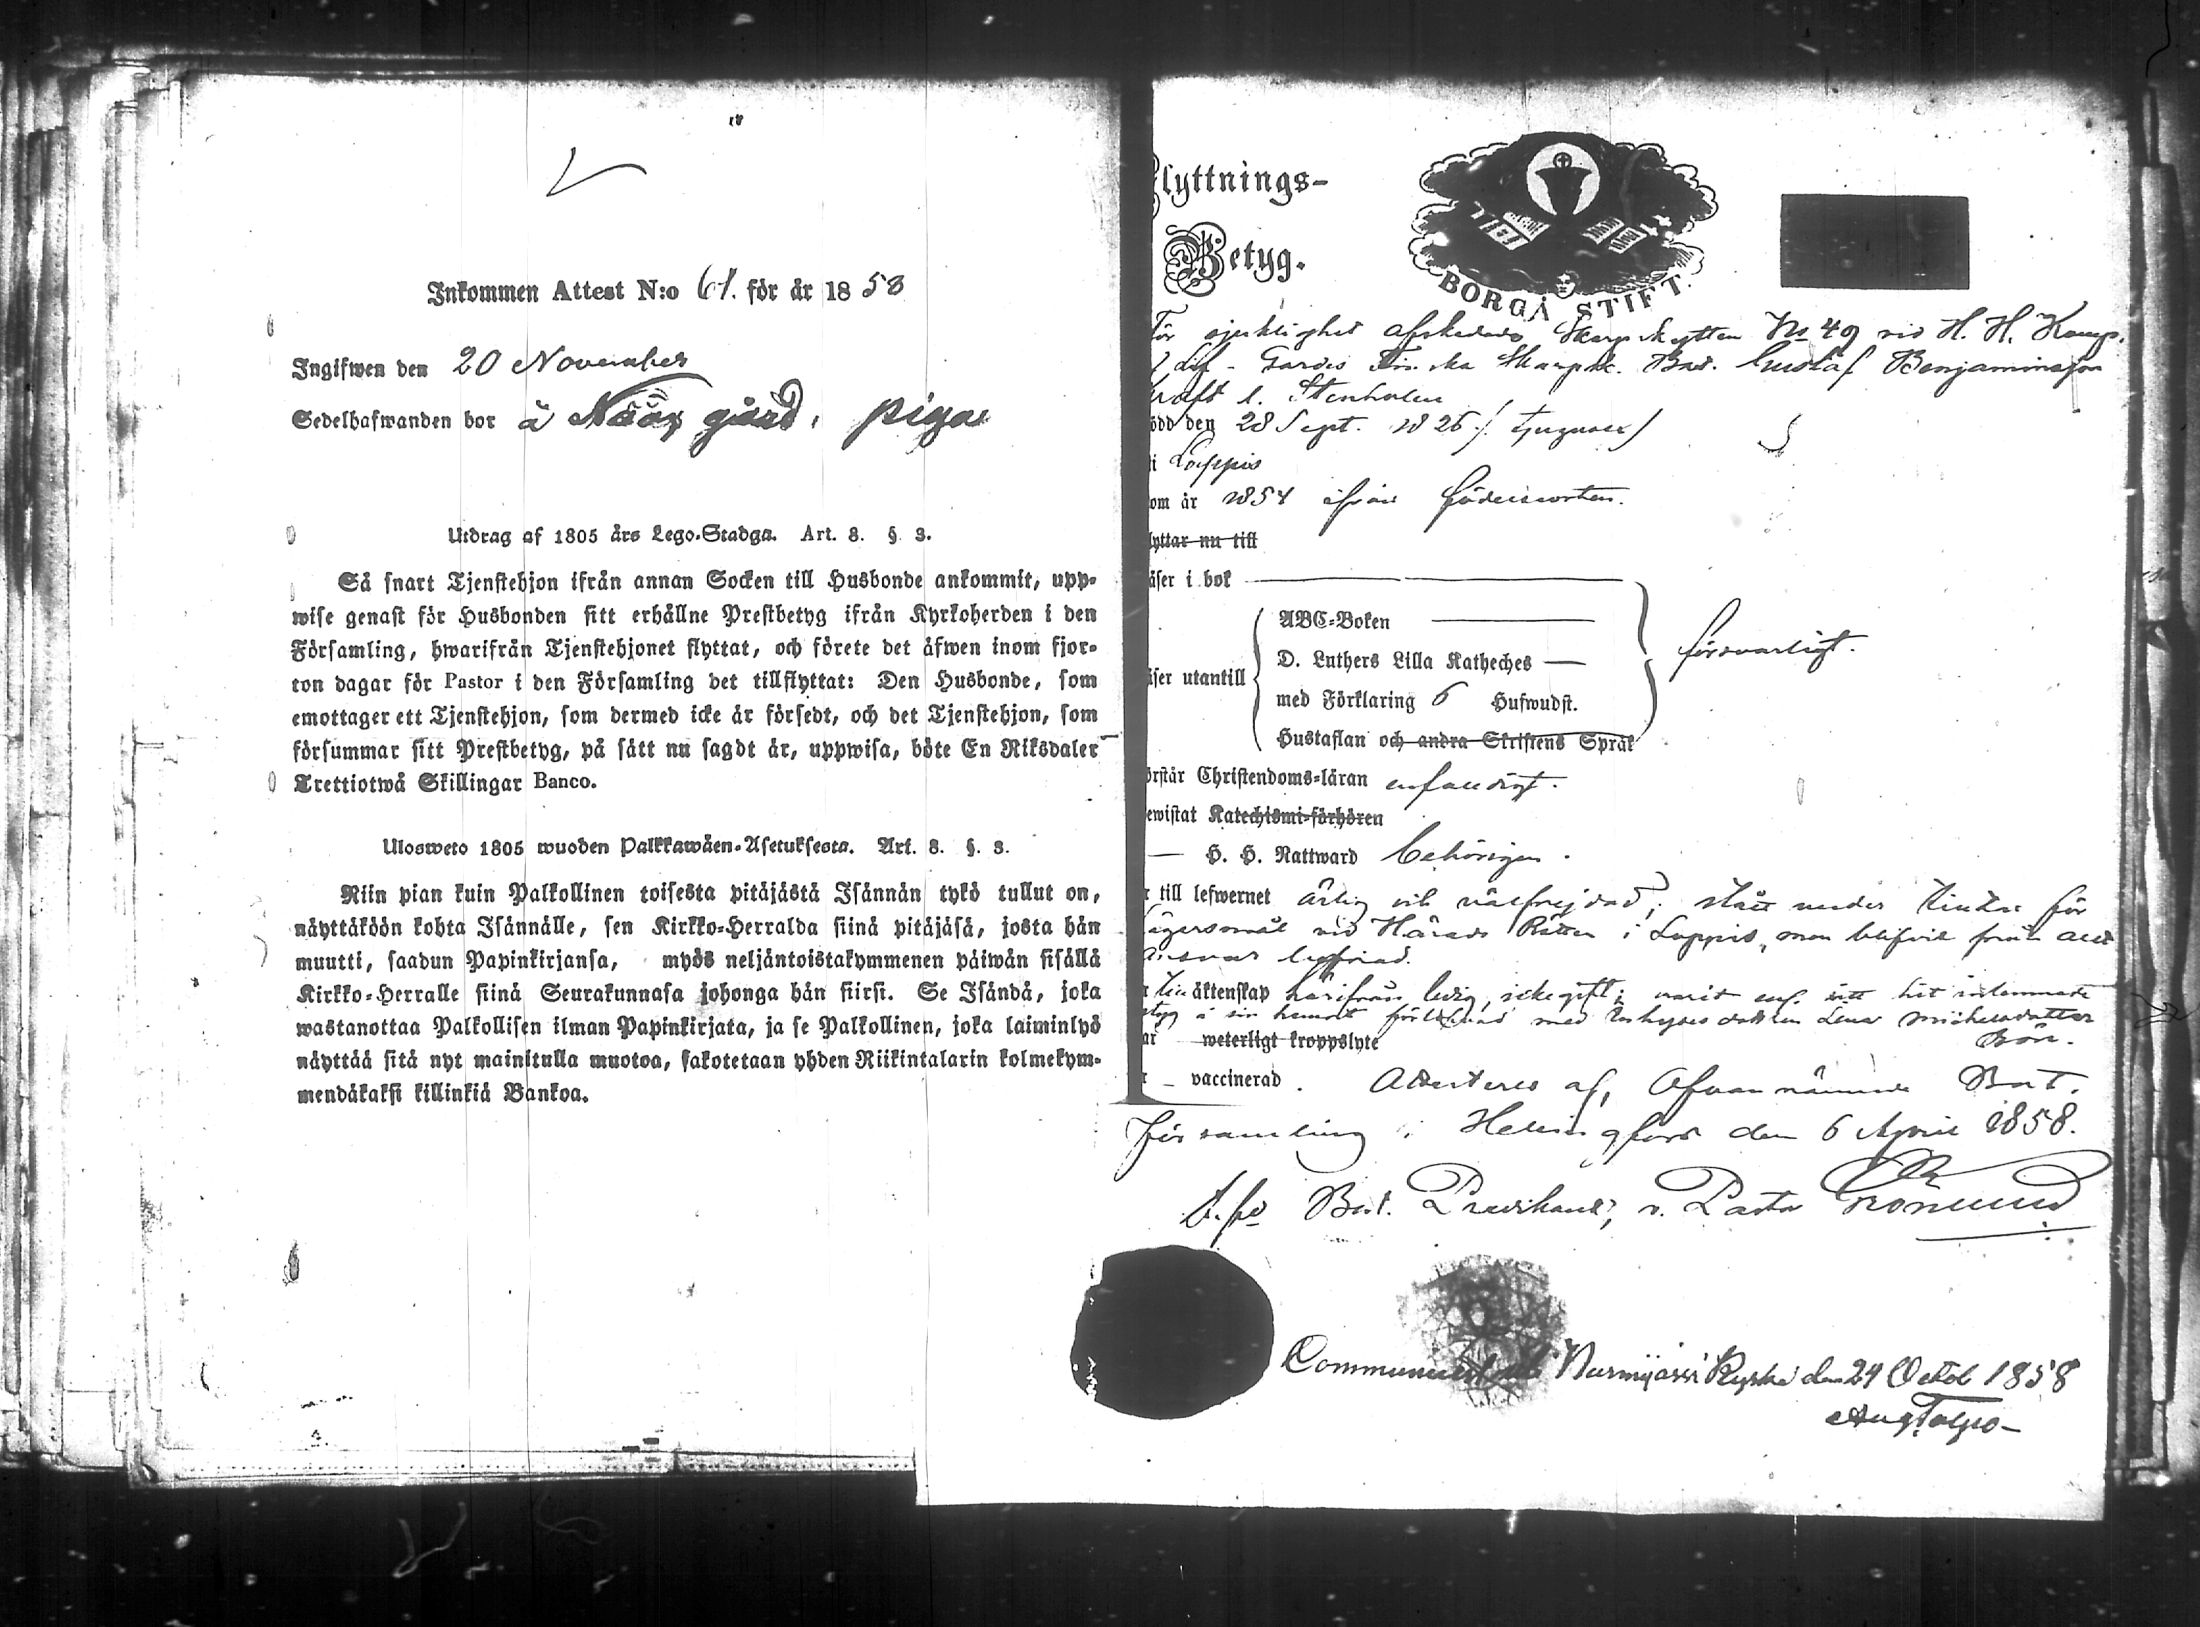 Inkommen Attest N:o 61. för år 1858
Ingifwen den 20 November
Sedelhafwanden bor å Näärs gård, piga
Utdrag af 1805 års Lego-Stadga. Art. 8. § 3.
Så snart Tjenstehjon ifrån annan Socken till Husbonde ankommit, upp-
wise genast för Husbonden sitt erhållne Prestbetyg ifrån Kyrkoherden i den
Församling, hwarifrån Tjenstehjonet flyttat, och förete det äfwen inom fjor-
ton dagar för Pastor i den Församling det tillflyttat: Den Husbonde, som
emottager ett Tjenstehjon, som dermed icke är försedt, och det Tjenstehjon, som
försummar sitt Prestbetyg, på sätt nu sagdt är, uppwisa, böte En Riksdaler
Trettiotwå Skillingar Banco.
Ulosweto 1805 wuoden Palkkawäen-Asetuksesta. Art. 8. §. 3.
Niin pian kuin Palkollinen toisesta pitäjästä Isännän tykö tullut on,
näyttäköön kohta Isännälle, sen Kirkko-Herralda siinä pitäjäsä, josta hän
muutti, saadun Papinkirjansa, myös neljäntoistakymmenen päiwän sisällä
Kirkko-Herralle siinä Seurakunnasa johonga hän siirsi. Se Isändä, joka
wastanottaa Palkollisen ilman Papinkirjata, ja se Palkollinen, joka laiminlyö
näyttää sitä nyt mainitulla muotoa, sakotetaan yhden Riikintalarin kolmekym-
mendäkaksi killinkiä Bankoa.
lyttnings-
Betyg.
BORGÅ STIFT.
För sjuklighet afskedade Skarpskytten No 49 vid H. H. Komp.
Lif-Gardes Finska Skarpsk. Bat. Gustaf Benjaminsson
Kraft l. Stenholm
ödd den 28 Sept. 1826 /: tjugusex /
i Loppis
om år 1854 ifrån födelseorten.
lyttar nu till
äser i bok
ABC-Boken
D. Luthers Lilla Katheches
äser utantill
med Förklaring 6 Hufwudst.
Hustaflan och andra Skriftens Språk
försvarligt.
örstår Christendoms-läran enfaldigt.
ewistat Katechismi-förhören
H. H. Nattward behörigen.
r till lefwernet ärlig och välfrejdad; stått under tiltal för
lägersmål vid Härads Rätten i Loppis, men blifvit från allt
ansvar befriad.
äktenskap härifrån ledig, icke gift; varit enl. sitt hit inlemnade
betyg å sin hemort förlofvad med Inhysesdottren Lena Michelsdotter
Bön.
ar weterligt kroppslyte
r vaccinerad. Attesteras af, Ofvannämnde Bat.
församling i Helsingfors den 6 April 1858.
t. f. Bat. Predikant, v. Pastor Grönlund
Communicerat vid Nurmijärvi Kyrka den 24 Octob 1858